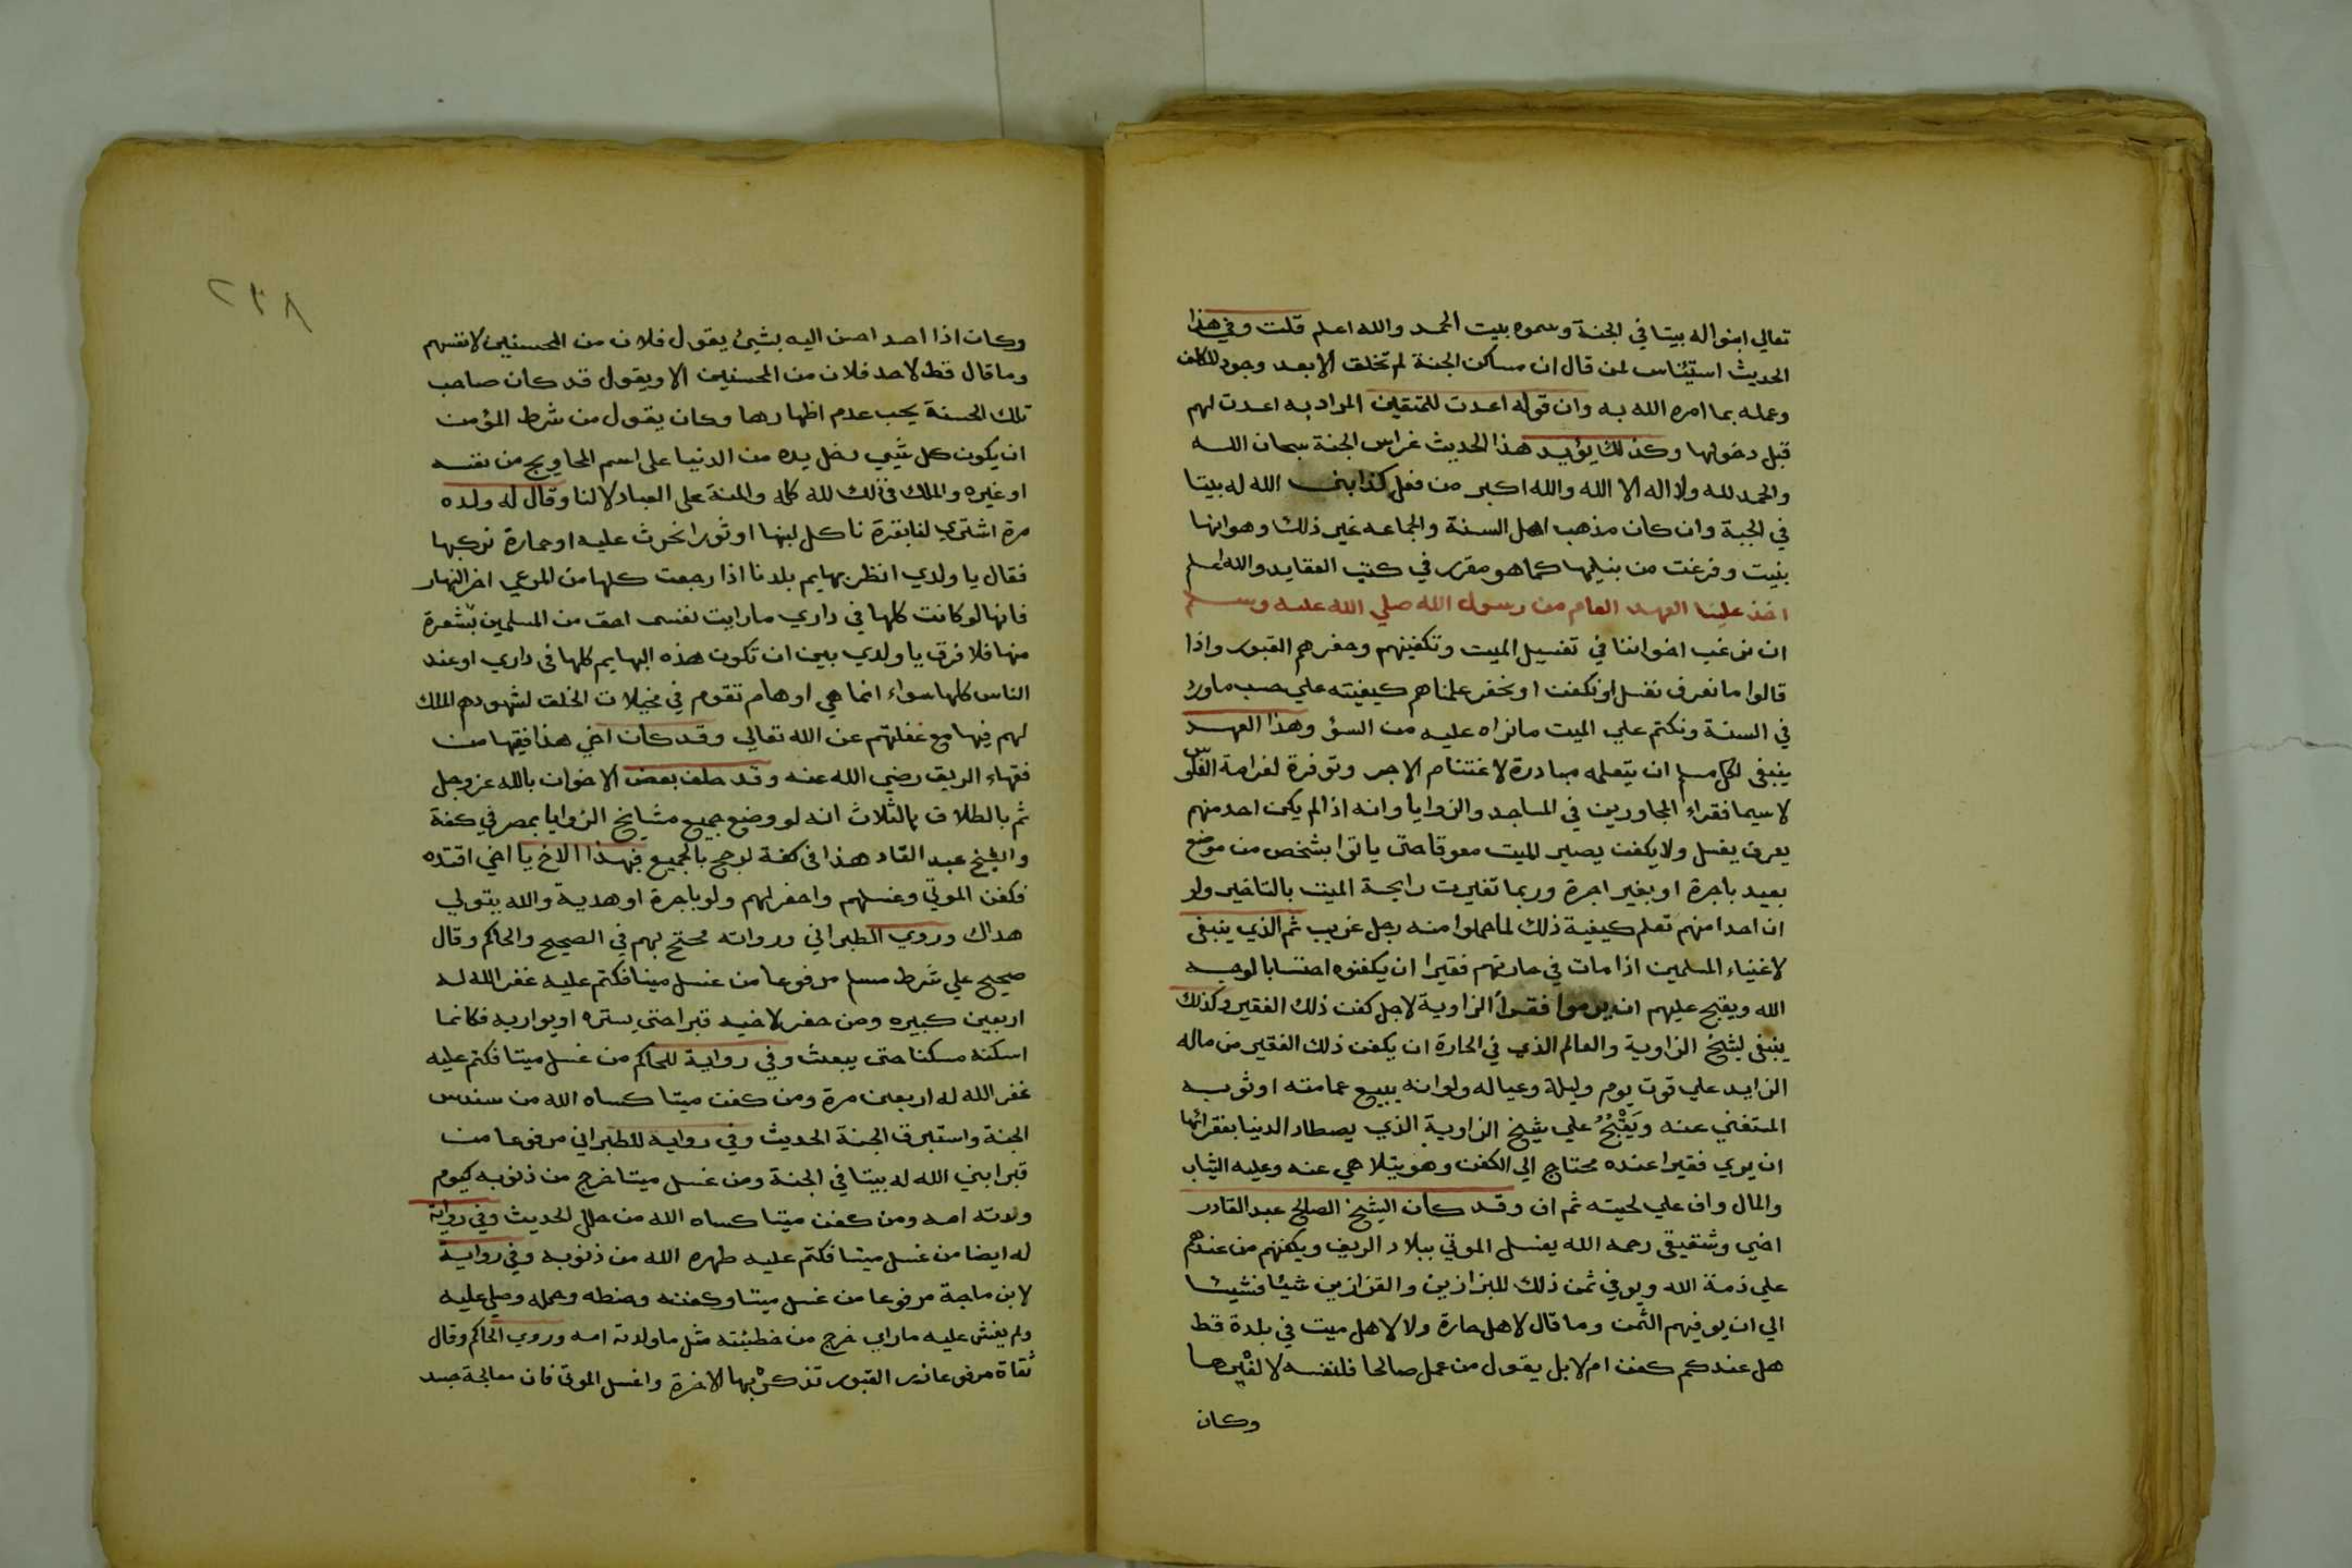 تعالي ابنوا له بيتا في الجنة وسموه بيت الحمد والله اعلم قلت وفي هذا
الحديث استيئناس لمن قال ان مساكن الجنة لم تخلق الا بعد وجود المكلف
وعمله بما امره الله به وان قوله اعدت للمتقين المراد به اعدت لهم
قبل دخولها وكذلك يؤيد هذا الحديث غراس الجنة سبحان الله
والحمد لله ولا اله الا الله والله اكبر من فعل كذا بنى الله له بيتا
في الجنة وان كان مذهب اهل السنة والجماعه غير ذلك وهو انها
بنيت وفرغت من بنيلها كما هو مقرر في كتب العقايد والله اعلم
اخذ علينا العهد العام من رسول الله صلي الله عليه وسلم
ان نرغب اخواننا في تغسيل الميت وتكفينهم وحفرهم القبور واذا
قالوا ما نعرف نغسل او نكفن او نحفر علمناهم كيفيته علي حسب ما ورد
في السنة ونكتم علي الميت ما نراه عليه من السؤ وهذا العهد
ينبغي لكل مسلم ان يتعلمه مبادرة لاغتنام الاجر وتوفرة لغرامة الفلوس
لاسيما فقراء المجاورين في المساجد والزوايا وانه اذا لم يكن احد منهم
يعرف يغسل ولا يكفن يصير الميت معوقا حتى ياتوا بشخص من موضع
بعيد باجرة او بغير اجرة وربما تغيرت رايحة الميت بالتاخير ولو
ان احدا منهم تعلم كيفية ذلك لما حملوا منه رجل غريب ثم الذي ينبغي
لاغنياء المسلمين اذا مات في حارتهم فقيرا ان يكفنوه احتسابا لوجه
الله ويقبح عليهم ان يرموا فقراء الزاوية لاجل كفن ذلك الفقير وكذلك
ينبغي لشيخ الزاوية والعالم الذي في الحارة ان يكفن ذلك الفقير من ماله
الزايد علي قوت يوم وليلة وعياله ولو انه يبيع عمامته او ثوبه
المستغني عنه ويَقْبُحُ علي شيخ الزاوية الذي يصطاد الدنيا بفقرائها
ان يري فقيرا عنده محتاج الي الكفن وهو يتلاهي عنه وعليه الثياب
والمال واف علي لحيته ثم ان وقد كان الشيخ الصالح عبد القادر
اخي وشقيقي رحمه الله يغسل الموتي ببلاد الريف ويكفنهم من عندهم
علي ذمة الله ويوفي ثمن ذلك للبزازين والقزازين شيئا فشيئا
الي ان يوفيهم الثمن وما قال لاهل حارة ولا لاهل ميت في بلدة قط
هل عندكم كفن ام لا بل يقول من عمل صالحا فلنفسه لا لغيرها
وكان
٢٣٨
وكان اذا احد احسن اليه بشيئ يقول فلان من المحسنين لانفسهم
وما قال قط لاحد فلان من المحسنين الا ويقول قد كان صاحب
تلك الحسنة يحب عدم اظهارها وكان يقول من شرط المؤمن
ان يكون كل شيي دخل يده من الدنيا على اسم المحاويج من نفسه
او غيره والملك في ذلك لله كله والمنة على العباد لا لنا وقال له ولده
مرة اشتري لنا بقرة ناكل لبنها او ثورا نحرث عليه او حمارة نركبها
فقال يا ولدي انظر بهايم بلدنا اذا رجعت كلها من المرعي اخر النهار
فانها لو كانت كلها في داري ما رايت نفسى احق من المسلمين بشعرة
منها فلا فرق يا ولدي بين ان تكون هذه البهايم كلها في داري او عند
الناس كلها سواء انما هي اوهام تقوم في مخيلات الخلق لشهودهم الملك
لهم فيها مع غفلتهم عن الله تعالي وقد كان اخي هذا فيقها من
فقهاء الريف رضي الله عنه وقد حلف بعض الاخوان بالله عز وجل
ثم بالطلاق بالثلاث انه لو وضع جميع مشايخ الزوايا بمصر في كفة
والشيخ عبد القاد هذا في كفة لرجح بالجميع فبهذا الاخ يا اخي اقتده
فكفن الموتي وغسلهم واحفر لهم ولو باجرة او هدية والله يتولي
هداك وروي الطبراني ورواته محتج بهم في الصحيح والحاكم وقال
صحيح علي شرط مسلم مرفوعا من غسل ميتا فكتم عليه غفر الله له
اربعين كبيره ومن حفر لاخيه قبرا حتى يستره او يواريه فكانما
اسكنه مسكنا حتى يبعث وفي رواية للحاكم من غسل ميتا فكتم عليه
غفر الله له اربعين مرة ومن كفن ميتا كساه الله من سندس
الجنة واستبرق الجنة الحديث وفي رواية للطبراني مرفوعا من
قبرا بني الله له بيتا في الجنة ومن غسل ميتا خرج من ذنوبه كيوم
ولدته امه ومن كفن ميتا كساه الله من حلل الحديث وفي رواية
له ايضا من غسل ميتا فكتم عليه طهره الله من ذنوبه وفي رواية
لابن ماجة مرفوعا من غسل ميتا وكفنه وحنطه وحمله وصلي عليه
ولم يفش عليه ما راي خرج من خطيئته مثل ما ولدته امه وروي الحاكم وقال
ثقاة مرفوعا زر القبور تذكر بها الاخرة واغسل الموتي فان معالجة جسد